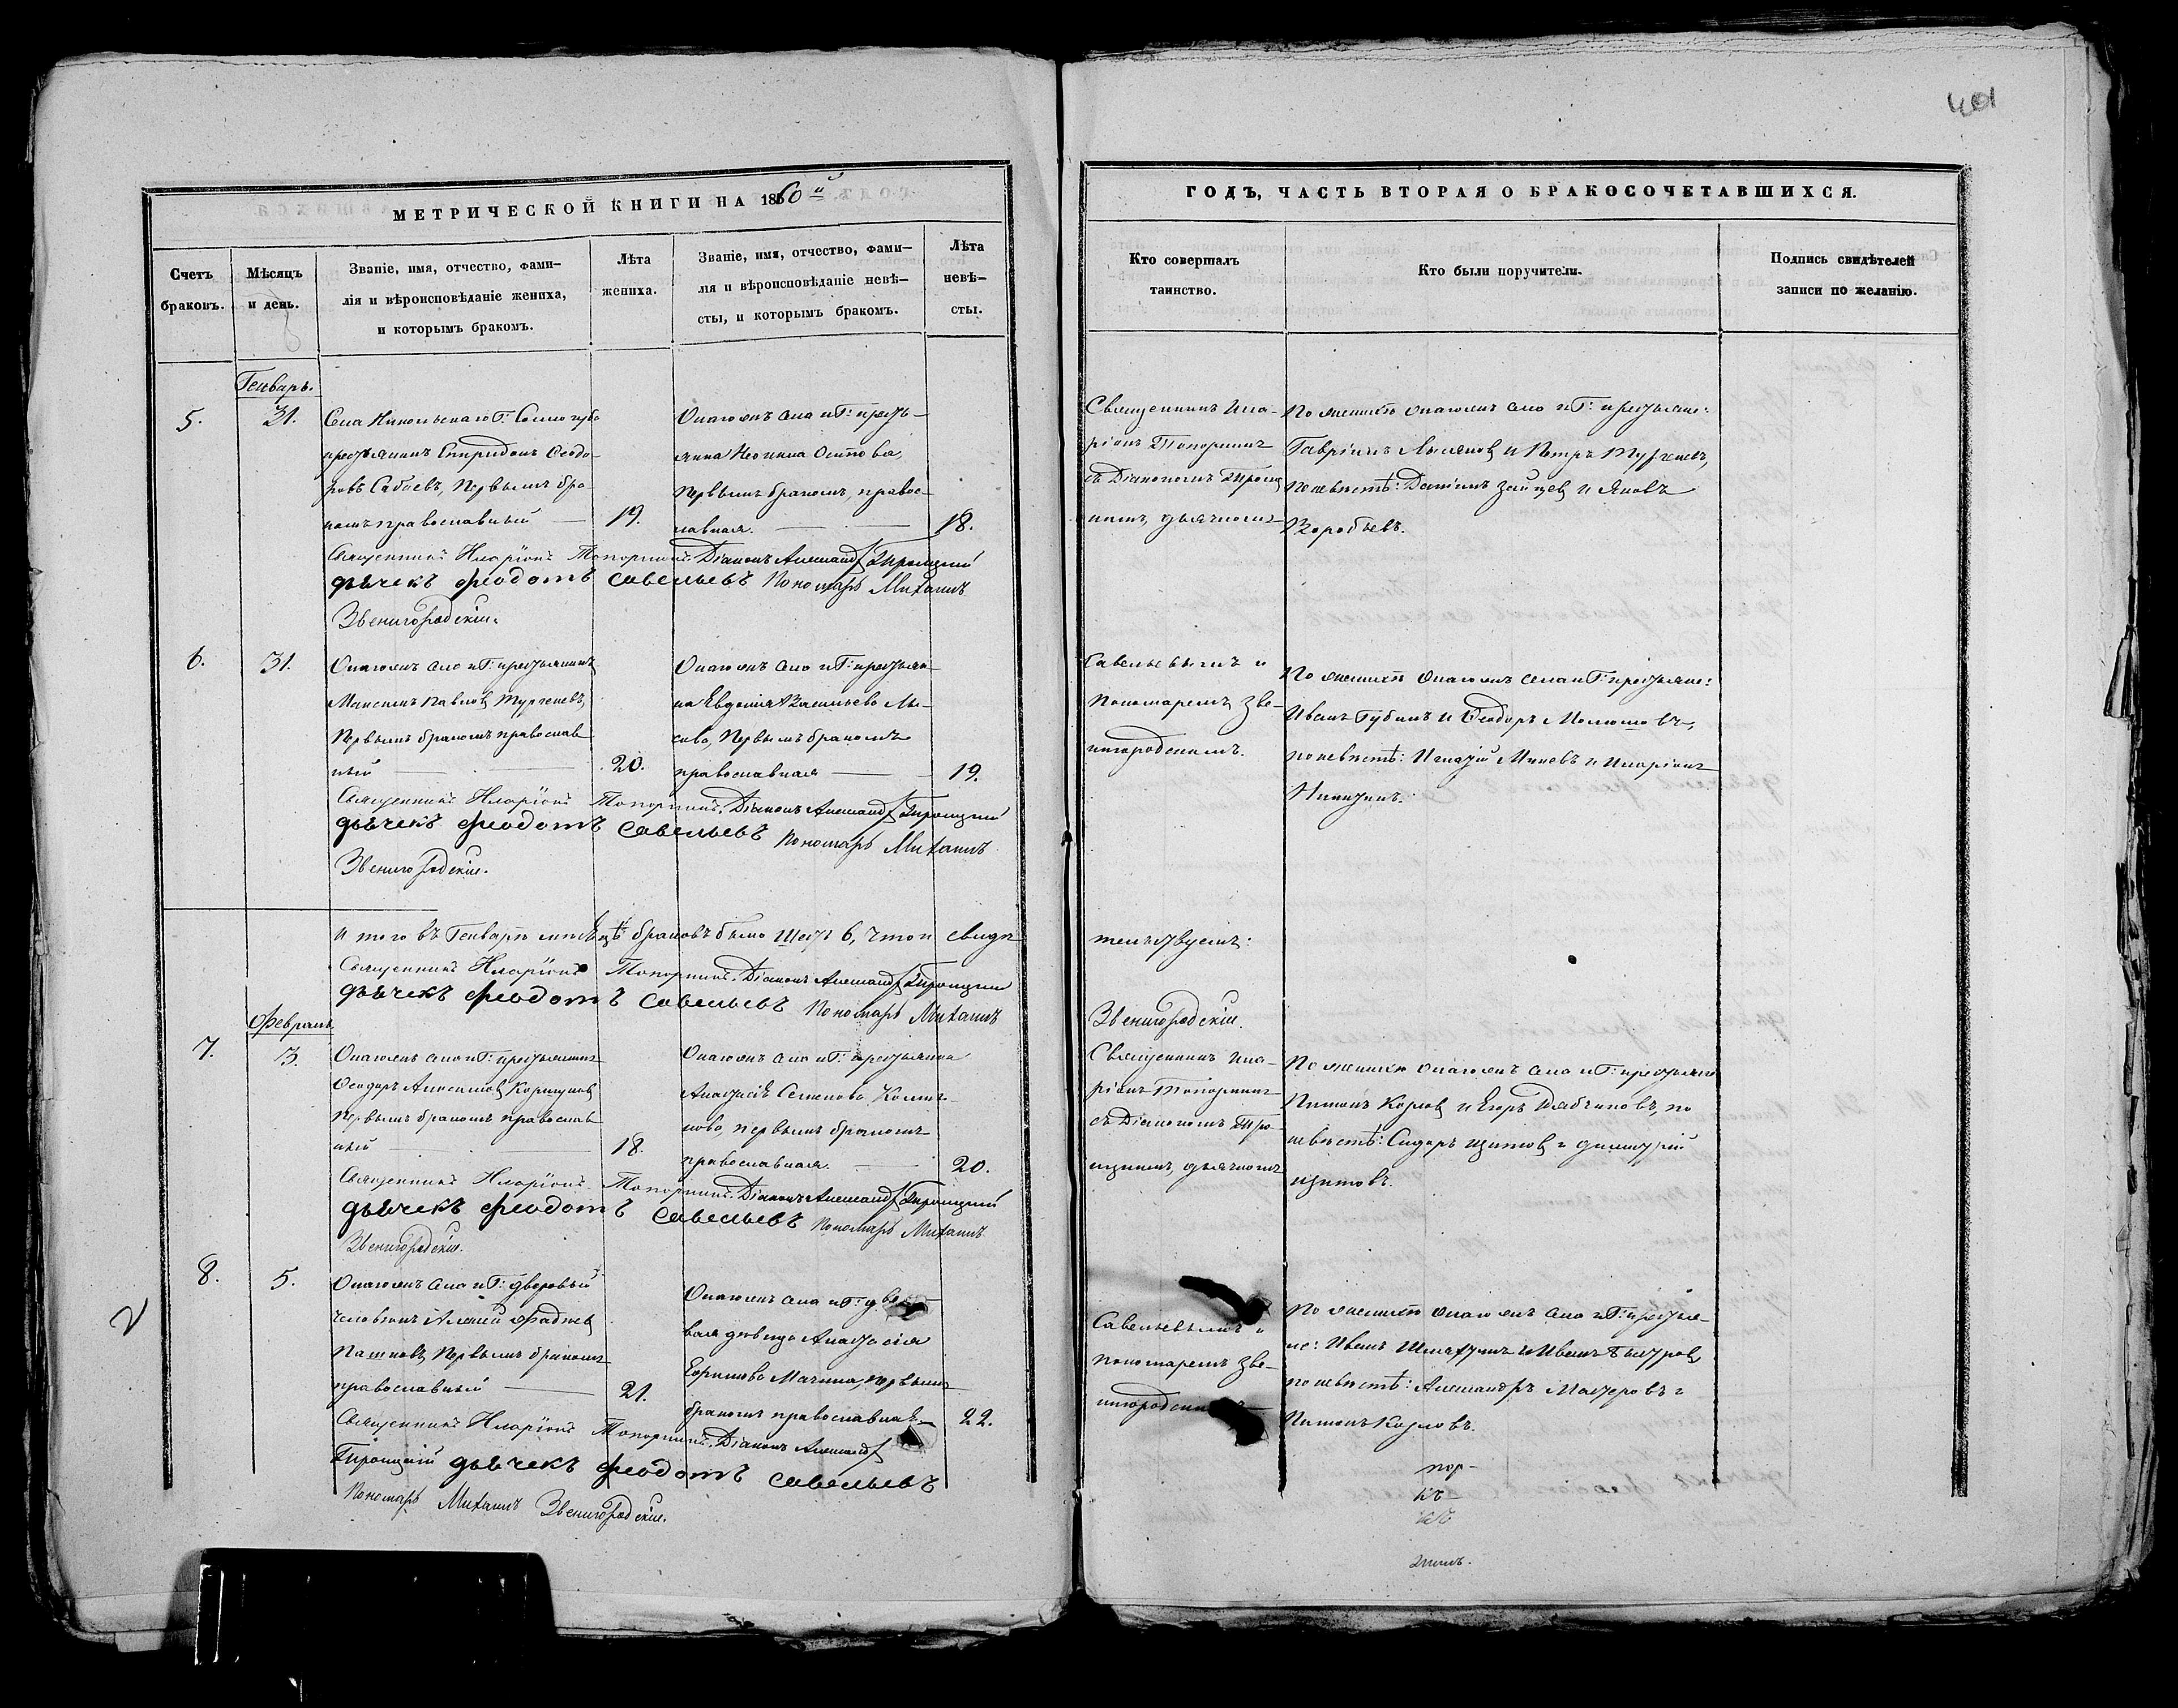 401
МЕТРИЧЕСКОЙ КНИГИ НА 1860й
ГОДЪ, ЧАСТЬ ВТОРАЯ О БРАКОСОЧЕТАВШИХСЯ.
Счетъ
браковъ.
Мѣсяцъ
и день.
Званіе, имя, отчество, фами-
лія и вѣроисповѣданіе жениха,
и которымъ бракомъ.
Лѣта
жениха.
Званіе, имя, отчество, фами-
лія и вѣроисповѣданіе невѣ-
сты, и которымъ бракомъ.
Лѣта
невѣ-
сты.
Кто совершалъ
таинство.
Кто были поручители.
Подпись свидѣтелей
записи по желанію.
Генварь.
5.
31.
Села Никольскаго Г:
крестьянинъ Спиридонъ Ѳеодо-
ровъ Сабаевъ, первымъ бра-
комъ православный
19.
Онагожъ села и Г: кресть-
янка
первымъ бракомъ, правос-
лавная.
18.
Священникъ Ила-
ріонъ Топорнинъ
съ Діакономъ Троиц
кимъ, дьячкомъ
По женихѣ онагожъ села и Г: крестьяне:
Гавріилъ и Петръ Тургеневъ,
по невѣстѣ: Даніилъ Зайцевъ и Яковъ
Воробьевъ.
Священникъ Иларіонъ Топорнинъ. Діаконъ Александръ Троицкій
дьячекъ Феодотъ Савельевъ Пономарь Михаилъ
Звенигородскій.
6.
31.
Онагожъ села и Г: крестьянинъ
Максимъ Павловъ Тургеневъ,
первымъ бракомъ православ
ный
20.
Онагожъ села и Г: крестьян
ка Евдокія Васильева Лы-
сова, первымъ бракомъ
православная
19.
Савельевымъ и
пономаремъ Зве-
нигородскимъ.
По женихѣ онагожъ села и Г: крестьяне:
Иванъ Губинъ и Ѳеодоръ
по невѣстѣ: Игнатій Минѣевъ и Иларіонъ
Никитинъ.
Священникъ Иларіонъ Топорнинъ. Діаконъ Александръ Троицкій
дьячекъ Феодотъ Савельевъ Пономарь Михаилъ
Звенигородскій.
Итого въ Генварѣ мѣсяцѣ браковъ было шесть 6, что и свидѣ
тельствуемъ:
Священникъ Иларіонъ Топорнинъ. Діаконъ Александръ Троицкій
дьячекъ Феодотъ Савельевъ Пономарь Михаилъ
Звенигородскій.
Февраль
7.
3.
Онагожъ села и Г: крестьянинъ
Ѳеодоръ Анисимовъ
первымъ бракомъ православ
ный
18.
Онагожъ села и Г: крестьянка
Анастасія Семенова
первымъ бракомъ
православная.
20.
Священникъ Ила-
ріонъ Топорнинъ
съ Діакономъ Тро-
ицкимъ, дьячкомъ
По женихѣ онагожъ села и Г: крестьяне
Пименъ Козловъ и Егоръ Рябчиковъ, по
невѣстѣ: Сидоръ и Димитрій
Священникъ Иларіонъ Топорнинъ. Діаконъ Александръ Троицкій
дьячекъ Феодотъ Савельевъ Пономарь Михаилъ
Звенигородскій.
8.
5.
Онагожъ села и Г: дворовый
человѣкъ Алексій Фадѣевъ
Пашковъ, первымъ бракомъ
православный
21.
Онагожъ села и Г: дворо-
вая дѣвица Анастасія
первымъ
бракомъ православная
22.
Савельевымъ и
пономаремъ Зве-
нигородскимъ
По женихѣ онагожъ села и Г: крестья-
не: Иванъ и Иванъ
по невѣстѣ: Александръ и
Пименъ Козловъ.
Священникъ Иларіонъ Топорнинъ. Діаконъ Александръ
Троицкій дьячекъ Феодотъ Савельевъ
Пономарь Михаилъ Звенигородскій.
2